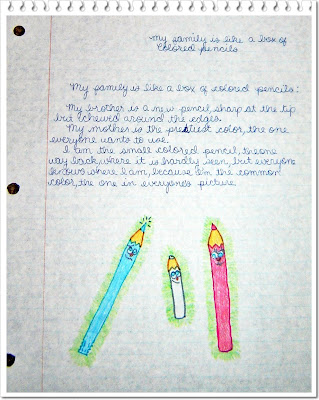 My family is like a box of
Colored pencils
My family is like a box of colored pencils:
My brother is a new pencil, sharp at the tip
but chewed around the edges.
My mother is the prettiest color, the one
everyone wants to use.
I am the small colored pencil, the one
way back, where it is hardly seen, but everyone
knows where I am, because I'm the common
color, the one in everyone's picture.